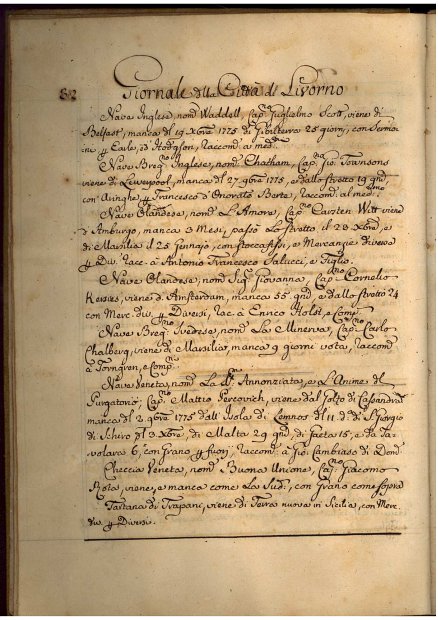 82
Giornale della Città di Livorno
Nave Inglese, nom. Waddell, Cap. Guglielmo Scott, viene di
Belfast, manca dl 19 Xbre 1775 di Gibilterra 25 giorni, con
Earle, ed Hodgson, Raccom. a med.
Nave Brig. Inglese, nom. Chatham, Cap. Gio. Townsons
viene di Liverpool, manca dl 27 9bre 1775, e dallo stretto 19 gni
con Aringhe p Francesco d'Onorato Berte, raccom. al med.
Nave Olandese, nom. L'Amore, Cap. Carsten Witt viene
d'Amburgo, manca 3 Mesi, passò Lo stretto il 28 Xbre, e
di Marsilia il 25 Gennajo, con stoccafissi, e Mercanzie diverse
p Div. Rac. a Antonio Francesco Salucci, e Figlio.
Nave Olandese, nom. Sig. Giovanna, Cap. Cornelio
viene d'Amsterdam, manca 55 gni, e dallo stretto 24
con Merc. div. p Diversi, Rac. a Enrico Holst, e Comp.
Nave Brig. Svedese, nom. La Minerva, Cap. Carlo
Chalberg, viene di Marsilia, manca 9 giorni vota, Raccom.
a Torngren, e Comp.
Nave Veneta, nom. La Annonziata, e L'Anime del
Purgatorio, Cap. Mattio Percovich, viene dal Golfo di Cassandra
manca dl 2 9bre 1775 dall'Isola di Lemnos dl 11 d. di S. Giorgio
di Schiro dl 3 Xbre, di Malta 29 gni, di Gaeta 15, e da Ta-
volara 6, con Grano p fuori, Raccom. a Gio. Cambiaso di Dom.
Checcia Veneta, nom. Buona Unione, Cap. Giacomo
Rota, viene, e manca come La Sud., con Grano come sopra
Tartana di Trapani, viene di Terra nuova in Sicilia, con Merc.
div. p Diversi.